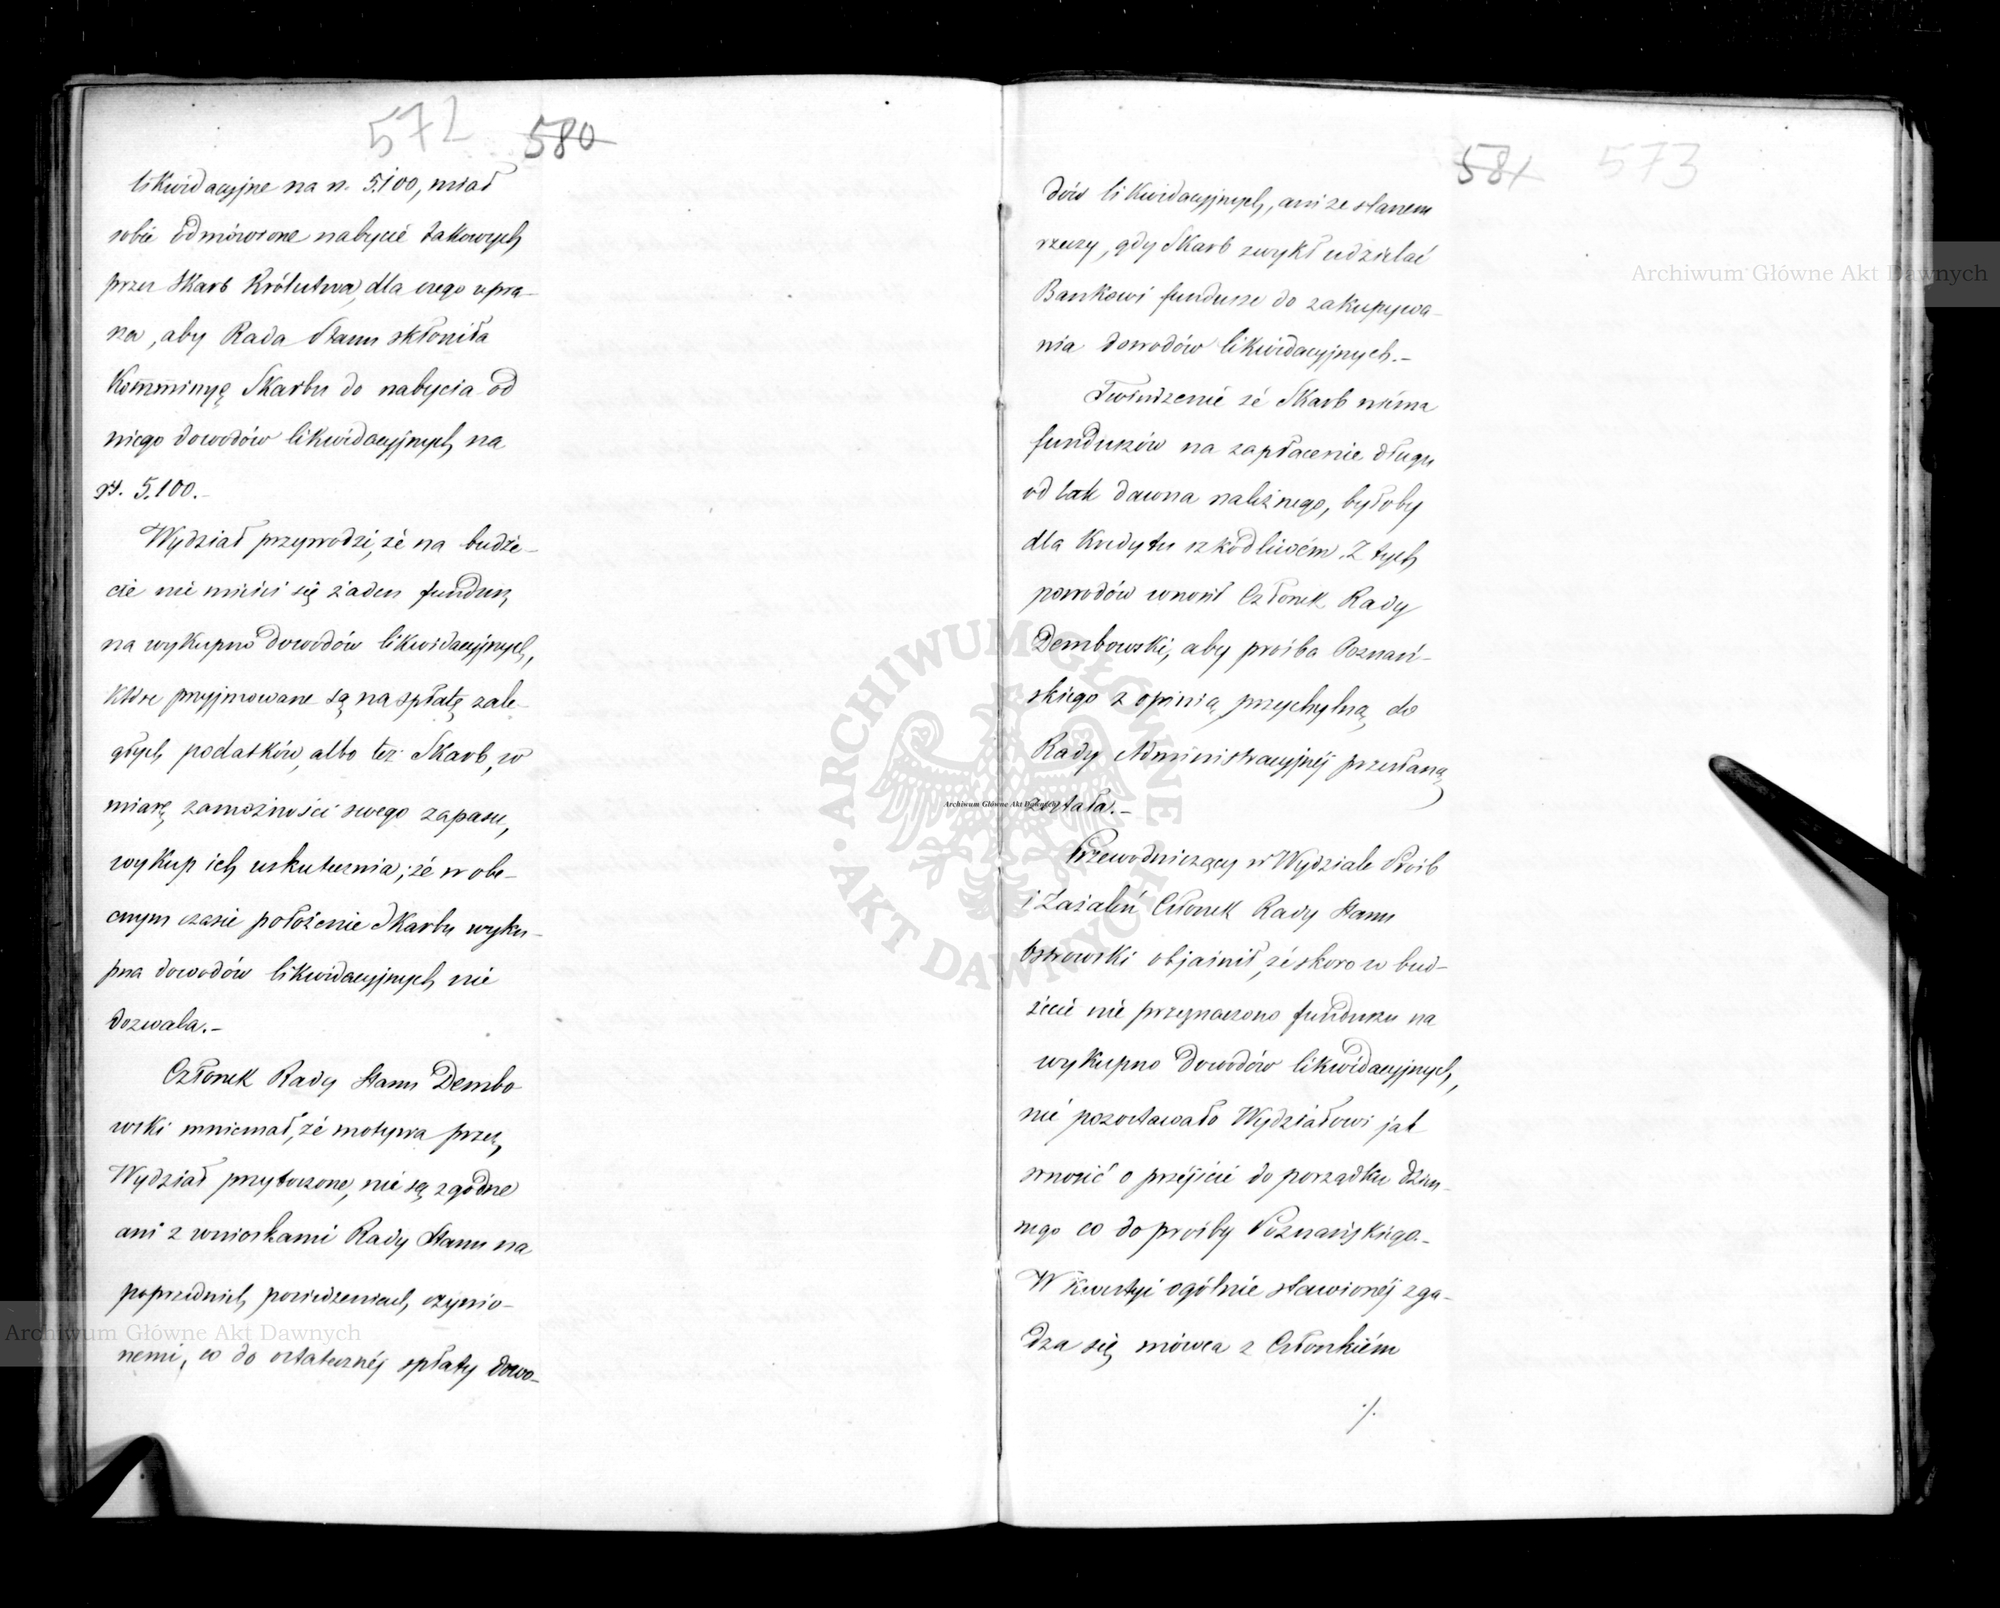 572 580
likwidacyjne na r. 5.100, miał
sobie odmówione nabycie takowych
przez Skarb Królestwa, dla czego upra-
sza, aby Rada Stanu skłoniła
Kommissyę Skarbu do nabycia od
niego dowodów likwidacyjnych na
rs. 5.100.-
Wydział przywodzi, że na budże-
cie nie mieści się żaden fundusz
na wykupno dowodów likwidacyjnych,
które przyjmowane są na spłatę zale-
głych podatków, albo też Skarb, w
miarę zamożności swego zapasu,
wykup ich uskutecznia; że w obe-
cnym czasie położenie Skarbu wyku-
pna dowodów likwidacyjnych nie
dozwala.-
Członek Rady Stanu Dembo
wski mniemał, że motywa przez
Wydział przytoczone, nie są zgodne
ani z wnioskami Rady Stanu na
poprzednich posiedzeniach uczynio-
nemi, co do ostatecznej spłaty dowo-
581 573
dów likwidacyjnych, ani ze stanem
rzeczy, gdy Skarb zwykł udzielać
Bankowi fundusze do zakupywa-
nia dowodów likwidacyjnych.-
Twierdzenie że Skarb niéma
funduszów na zapłacenie długu
od tak dawna należnego, byłoby
dla Kredytu szkodliwém. Z tych
powodów wnosił Członek Rady
Dembowski, aby prośba Poznań-
skiego z opinią przychylną do
Rady Administracyjnéj przesłaną
została.-
Przewodniczący w Wydziale Próśb
i Zażaleń Członek Rady Stanu
Ostrowski objaśnił, że skoro w bud-
żecie nie przeznaczono funduszu na
wykupno dowodów likwidacyjnych,
nie pozostawało Wydziałowi jak
wnosić o przejście do porządku dzien-
nego co do prośby Poznańskiego.-
W Kwestyi ogólnie stawionéj zga-
dza się mówca z Członkiém
./.
Archiwum Główne Akt Dawnych
Archiwum Główne Akt Dawnych
Archiwum Główne Akt Dawnych
ARCHIWUM GŁÓWNE AKT DAWNYCH